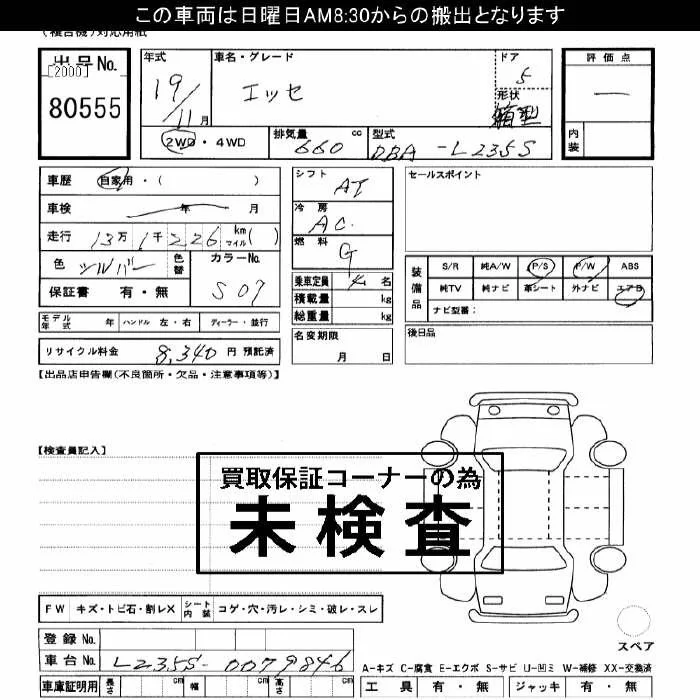 この車両は日曜日AM8:30からの搬出となります
(複合機)対応用紙
出品No.
[2000]
80555
年式
19/11月
車名・グレード
エッセ
ドア
5
形状
箱型
評価点
―
内装
2WD・4WD
排気量 660 cc
型式 DBA-L235S
車歴 自家用・( )
車検 年 月
走行 13万1千226 km マイル( )
色 シルバー 色替
カラーNo. S07
保証書 有・無
シフト AT
冷房 AC
燃料 G
乗車定員 4 名
積載量 kg
総重量 kg
セールスポイント
装備品
S/R 純A/W P/S P/W ABS
純TV 純ナビ 革シート 外ナビ エアB
ナビ型番:
モデル年式 年 ハンドル 左・右 ディーラー・並行
名変期限 月 日
後日品
リサイクル料金 8,340 円 預託済
【出品店申告欄(不良箇所・欠品・注意事項等)】
【検査員記入】
買取保証コーナーの為
未検査
FW キズ・トビ石・割レX シート内装 コゲ・穴・汚レ・シミ・破レ・スレ
スペア
登録No.
車台No. L235S-0079846
A-キズ C-腐食 E-エクボ S-サビ U-凹ミ W-補修 XX-交換済
車庫証明用 長さ cm 幅 cm 高さ cm
工具 有・無 ジャッキ 有・無